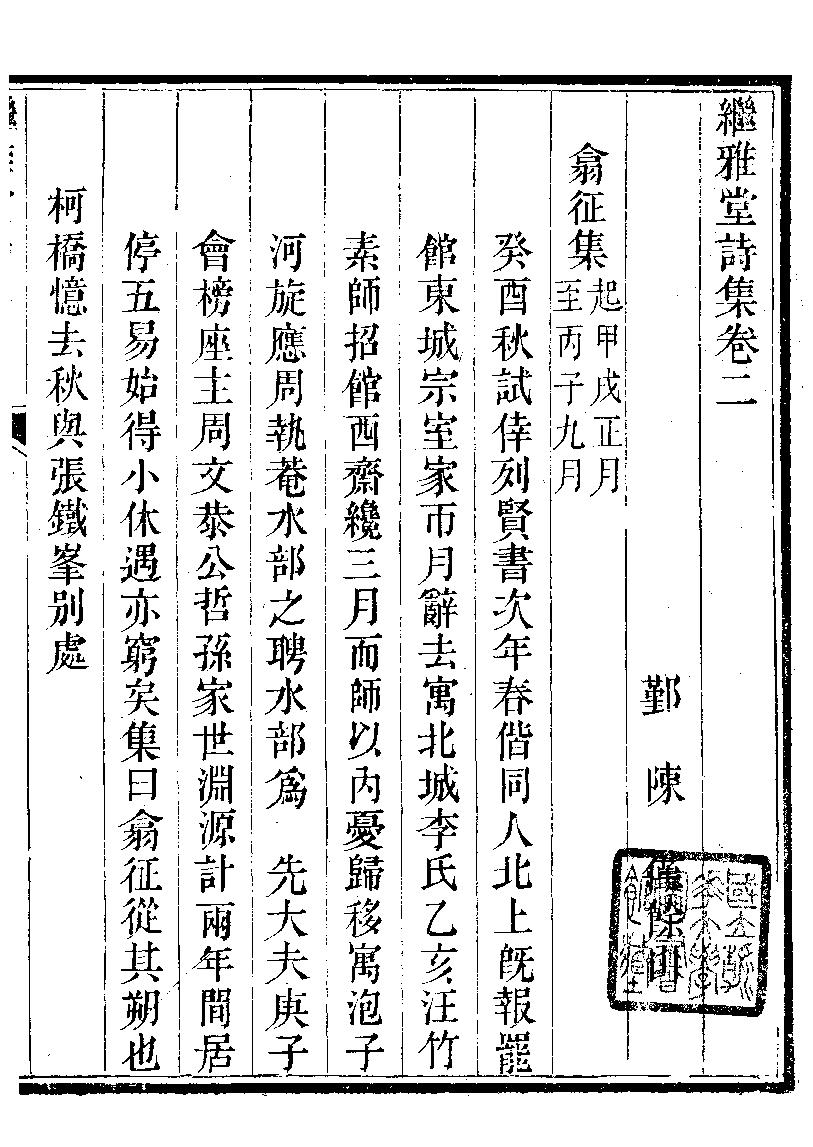 繼雅堂詩集卷二
鄞 陳
翕征集 起甲戌正月
至丙子九月
癸酉秋試倖列賢書次年春偕同人北上旣報罷
館東城宗室家帀月辭去寓北城李氏乙亥汪竹
素師招館西齋纔三月而師以內憂歸移寓泡子
河旋應周執菴水部之聘水部爲 先大夫庚子
會榜座主周文恭公哲孫家世淵源計兩年間居
停五易始得小休遇亦窮矣集曰翕征從其朔也
柯橋憶去秋與張鐵峯別處